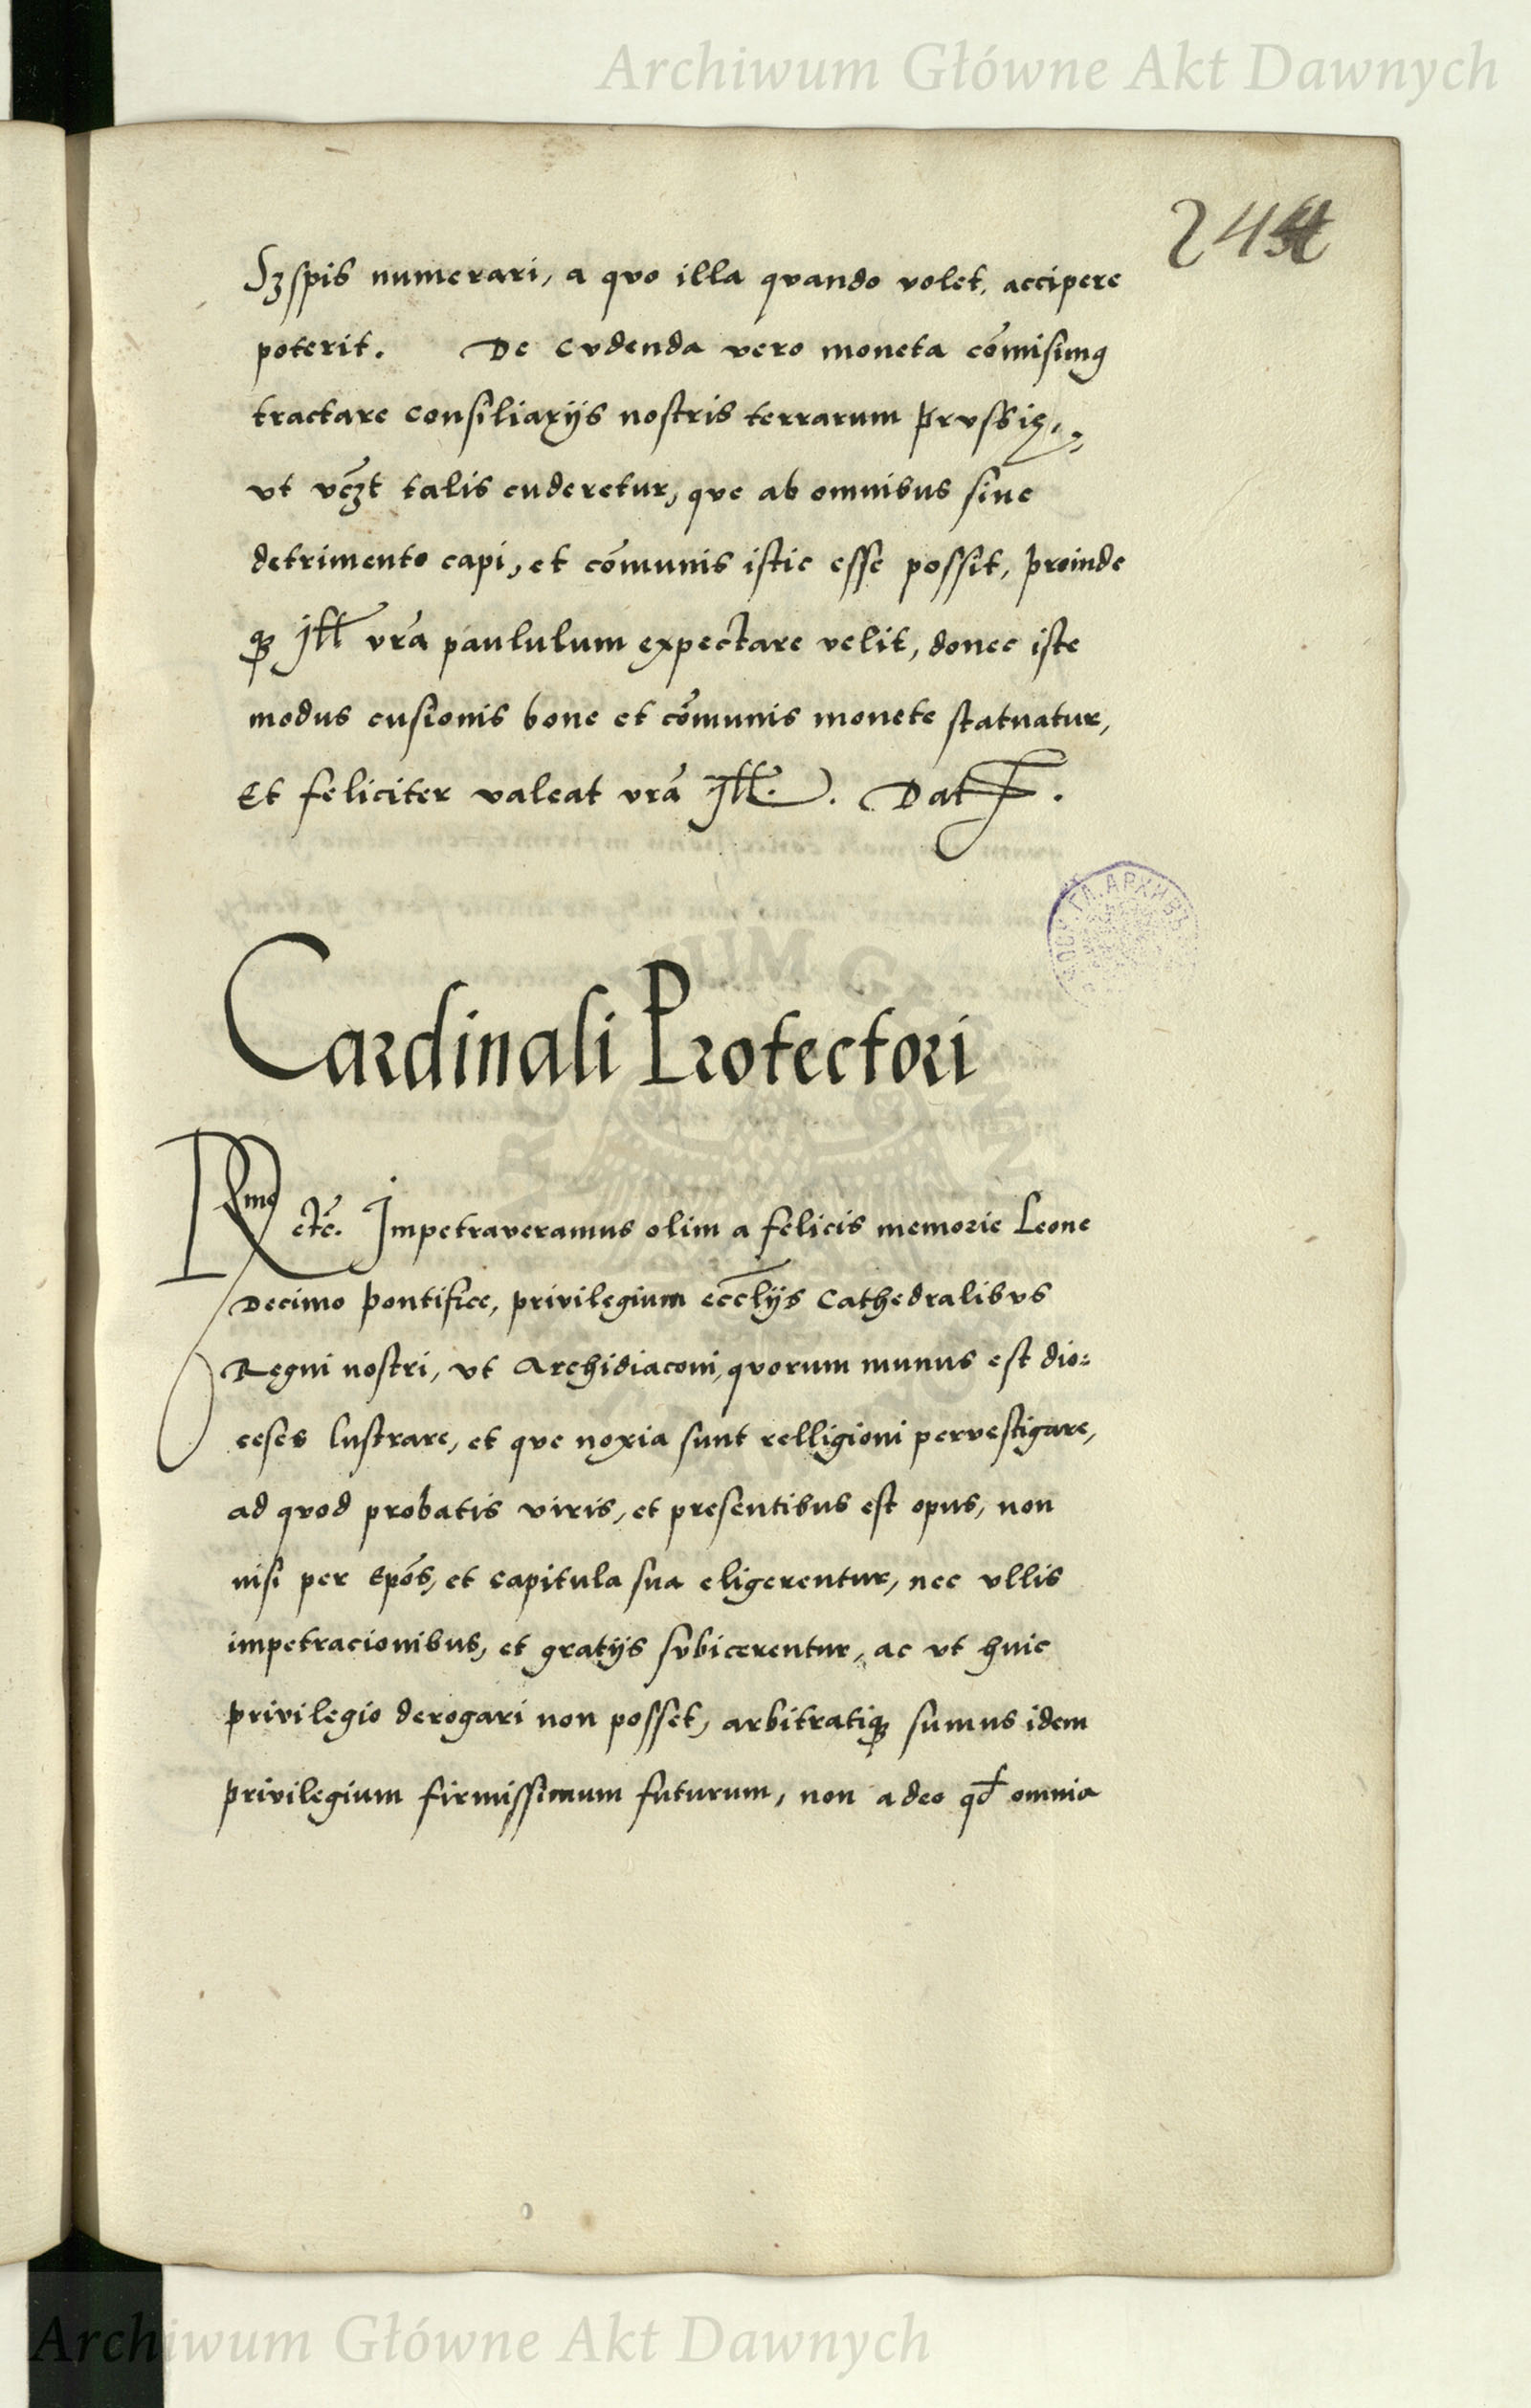 Archiwum Główne Akt Dawnych
244
Szspis numerari, a quo illa quando volet, accipere
poterit. De cudenda vero moneta cōmisimꝰ
tractare consiliarijs nostris terrarum prussię,
ut vcꝫt talis cuderetur, que ab omnibus sine
detrimento capi, et cōmunis istic esse possit, proinde
qꝫ Ill vrā paululum expectare velit, donec iste
modus cusionis bone et cōmunis monete statuatur,
Et feliciter valeat vrā Ill. Dat.
Cardinali Protectori
Rme etc. Impetraveramus olim a felicis memorie Leone
Decimo pontifice, privilegium eccīijs Cathedralibus
Regni nostri, ut Archidiaconi, quorum munus est dio=
ceses lustrare, et que noxia sunt relligioni pervestigare,
ad quod probatis viris, et presentibus est opus, non
nisi per Epōs, et capitula sua eligerentur, nec ullis
impetracionibus, et gratijs subicerentur, ac ut huic
privilegio derogari non posset, arbitratiqꝫ sumus idem
privilegium firmissimum futurum, non adeo qđ omnia
Archiwum Główne Akt Dawnych